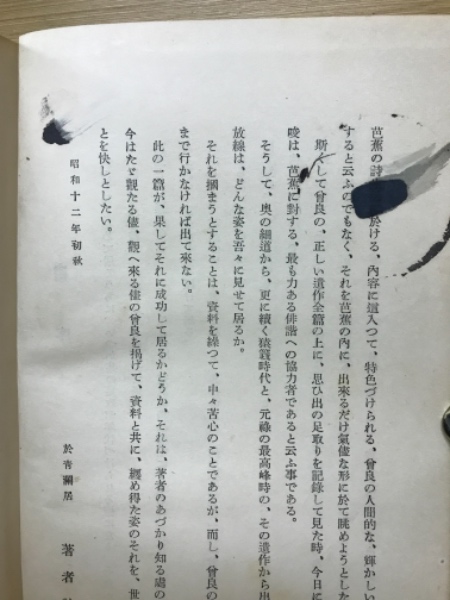 芭蕉の詩 於ける、內容に這入つて、特色づけられる、曾良の人間的な、輝かしい
すると云ふのでもなく、それを芭蕉の內に、出來るだけ氣儘な形に於て眺めようとした
斯 して曾良の、正しい遺作全篇の上に、思ひ出の足取りを記錄して見た時、今日に
唆は、芭蕉に對する、最も力ある俳諧への協力者であると云ふ事である。
そうして、奥の細道から、更に續く猿蓑時代と、元祿の最高峰時の、その遺作から出
放線は、どんな姿を吾々に見せて居るか。
それを摑まうとすることは、資料を繰つて、中々苦心のことであるが、而し、曾良の
まで行かなければ出て來ない。
此の一篇が、果してそれに成功して居るかどうか、それは、著者のあづかり知る處の
今はたゞ觀たる儘、觀へ來る儘の曾良を揭げて、資料と共に、纏め得た姿のそれを、世
とを快しとしたい。
昭和十二年初秋
於 居
著者